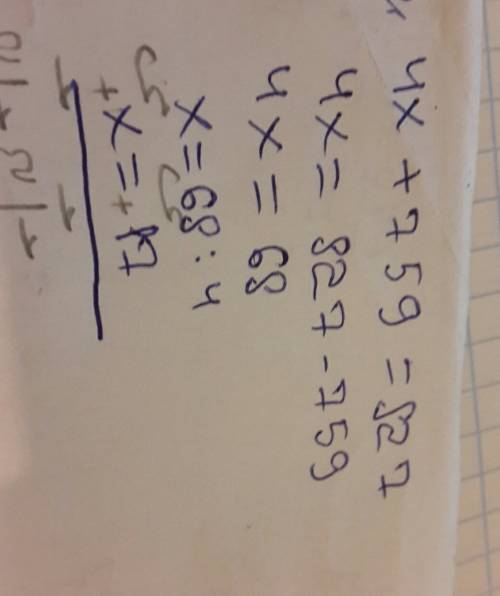 4x + 759 = 827
4x = 827 - 759
4x = 68
x = 68 : 4
x = 17